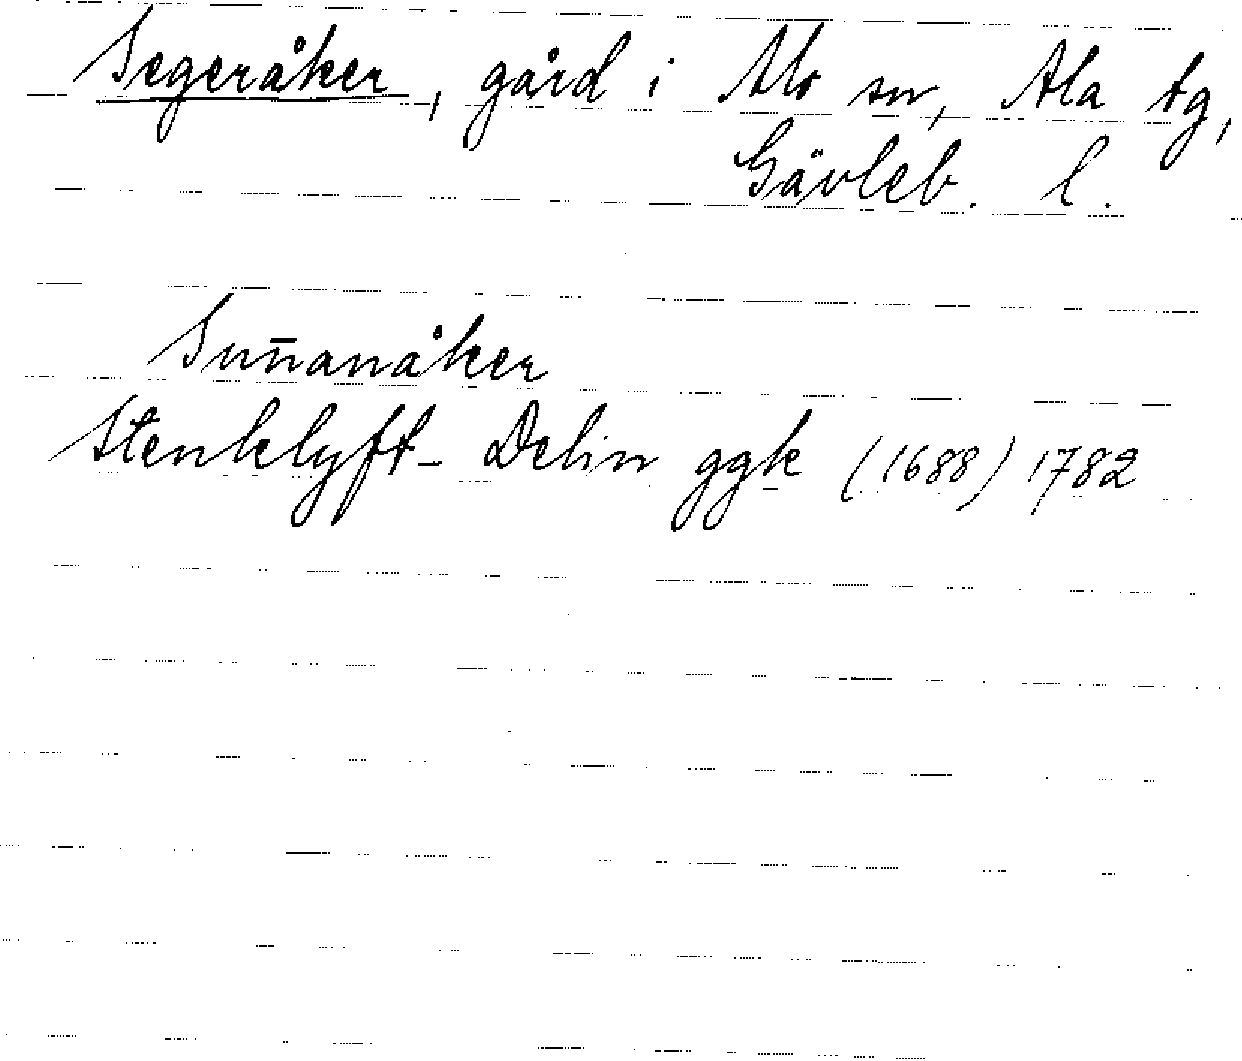 Segeråker, gård i Alo sn, Ala tg,
Gävleb. l.
Sun̄anåker
Stenklyft- Delin ggk (1688) 1782